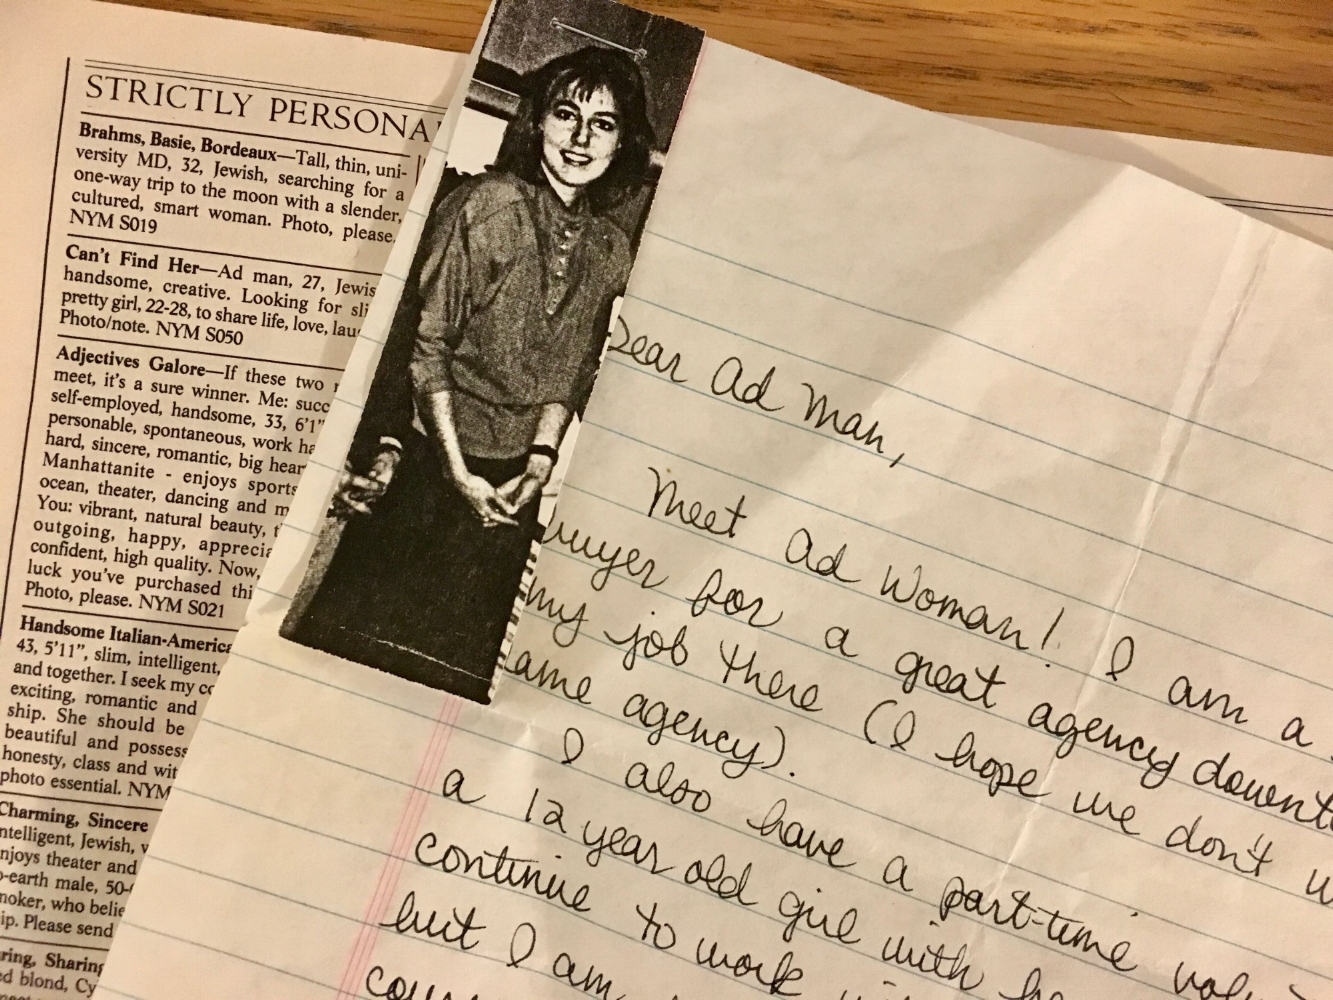 STRICTLY PERSONA
Brahms, Basie, Bordeaux—Tall, thin, uni-
versity MD, 32, Jewish, searching for a
one-way trip to the moon with a slender,
cultured, smart woman. Photo, please.
NYM S019
Can't Find Her—Ad man, 27, Jewis
handsome, creative. Looking for sli
pretty girl, 22-28, to share life, love, lau
Photo/note. NYM S050
Adjectives Galore—If these two
meet, it's a sure winner. Me: succ
self-employed, handsome, 33, 6'1"
personable, spontaneous, work ha
hard, sincere, romantic, big hear
Manhattanite - enjoys sports
ocean, theater, dancing and m
You: vibrant, natural beauty, t
outgoing, happy, apprecia
confident, high quality. Now,
luck you've purchased thi
Photo, please. NYM S021
Handsome Italian-America
43, 5'11", slim, intelligent,
and together. I seek my co
exciting, romantic and
ship. She should be
beautiful and possess
honesty, class and wit
photo essential. NYM
Charming, Sincere
ntelligent, Jewish, v
njoys theater and
o-earth male, 50-
moker, who belie
ip. Please send
ring, Sharing
ed blond, Cy
Dear Ad Man,
Meet Ad Woman! I am a
buyer for a great agency downt
my job there (I hope we don't w
ame agency).
I also have a part-time
a 12 year old girl with he
continue to work
but I am